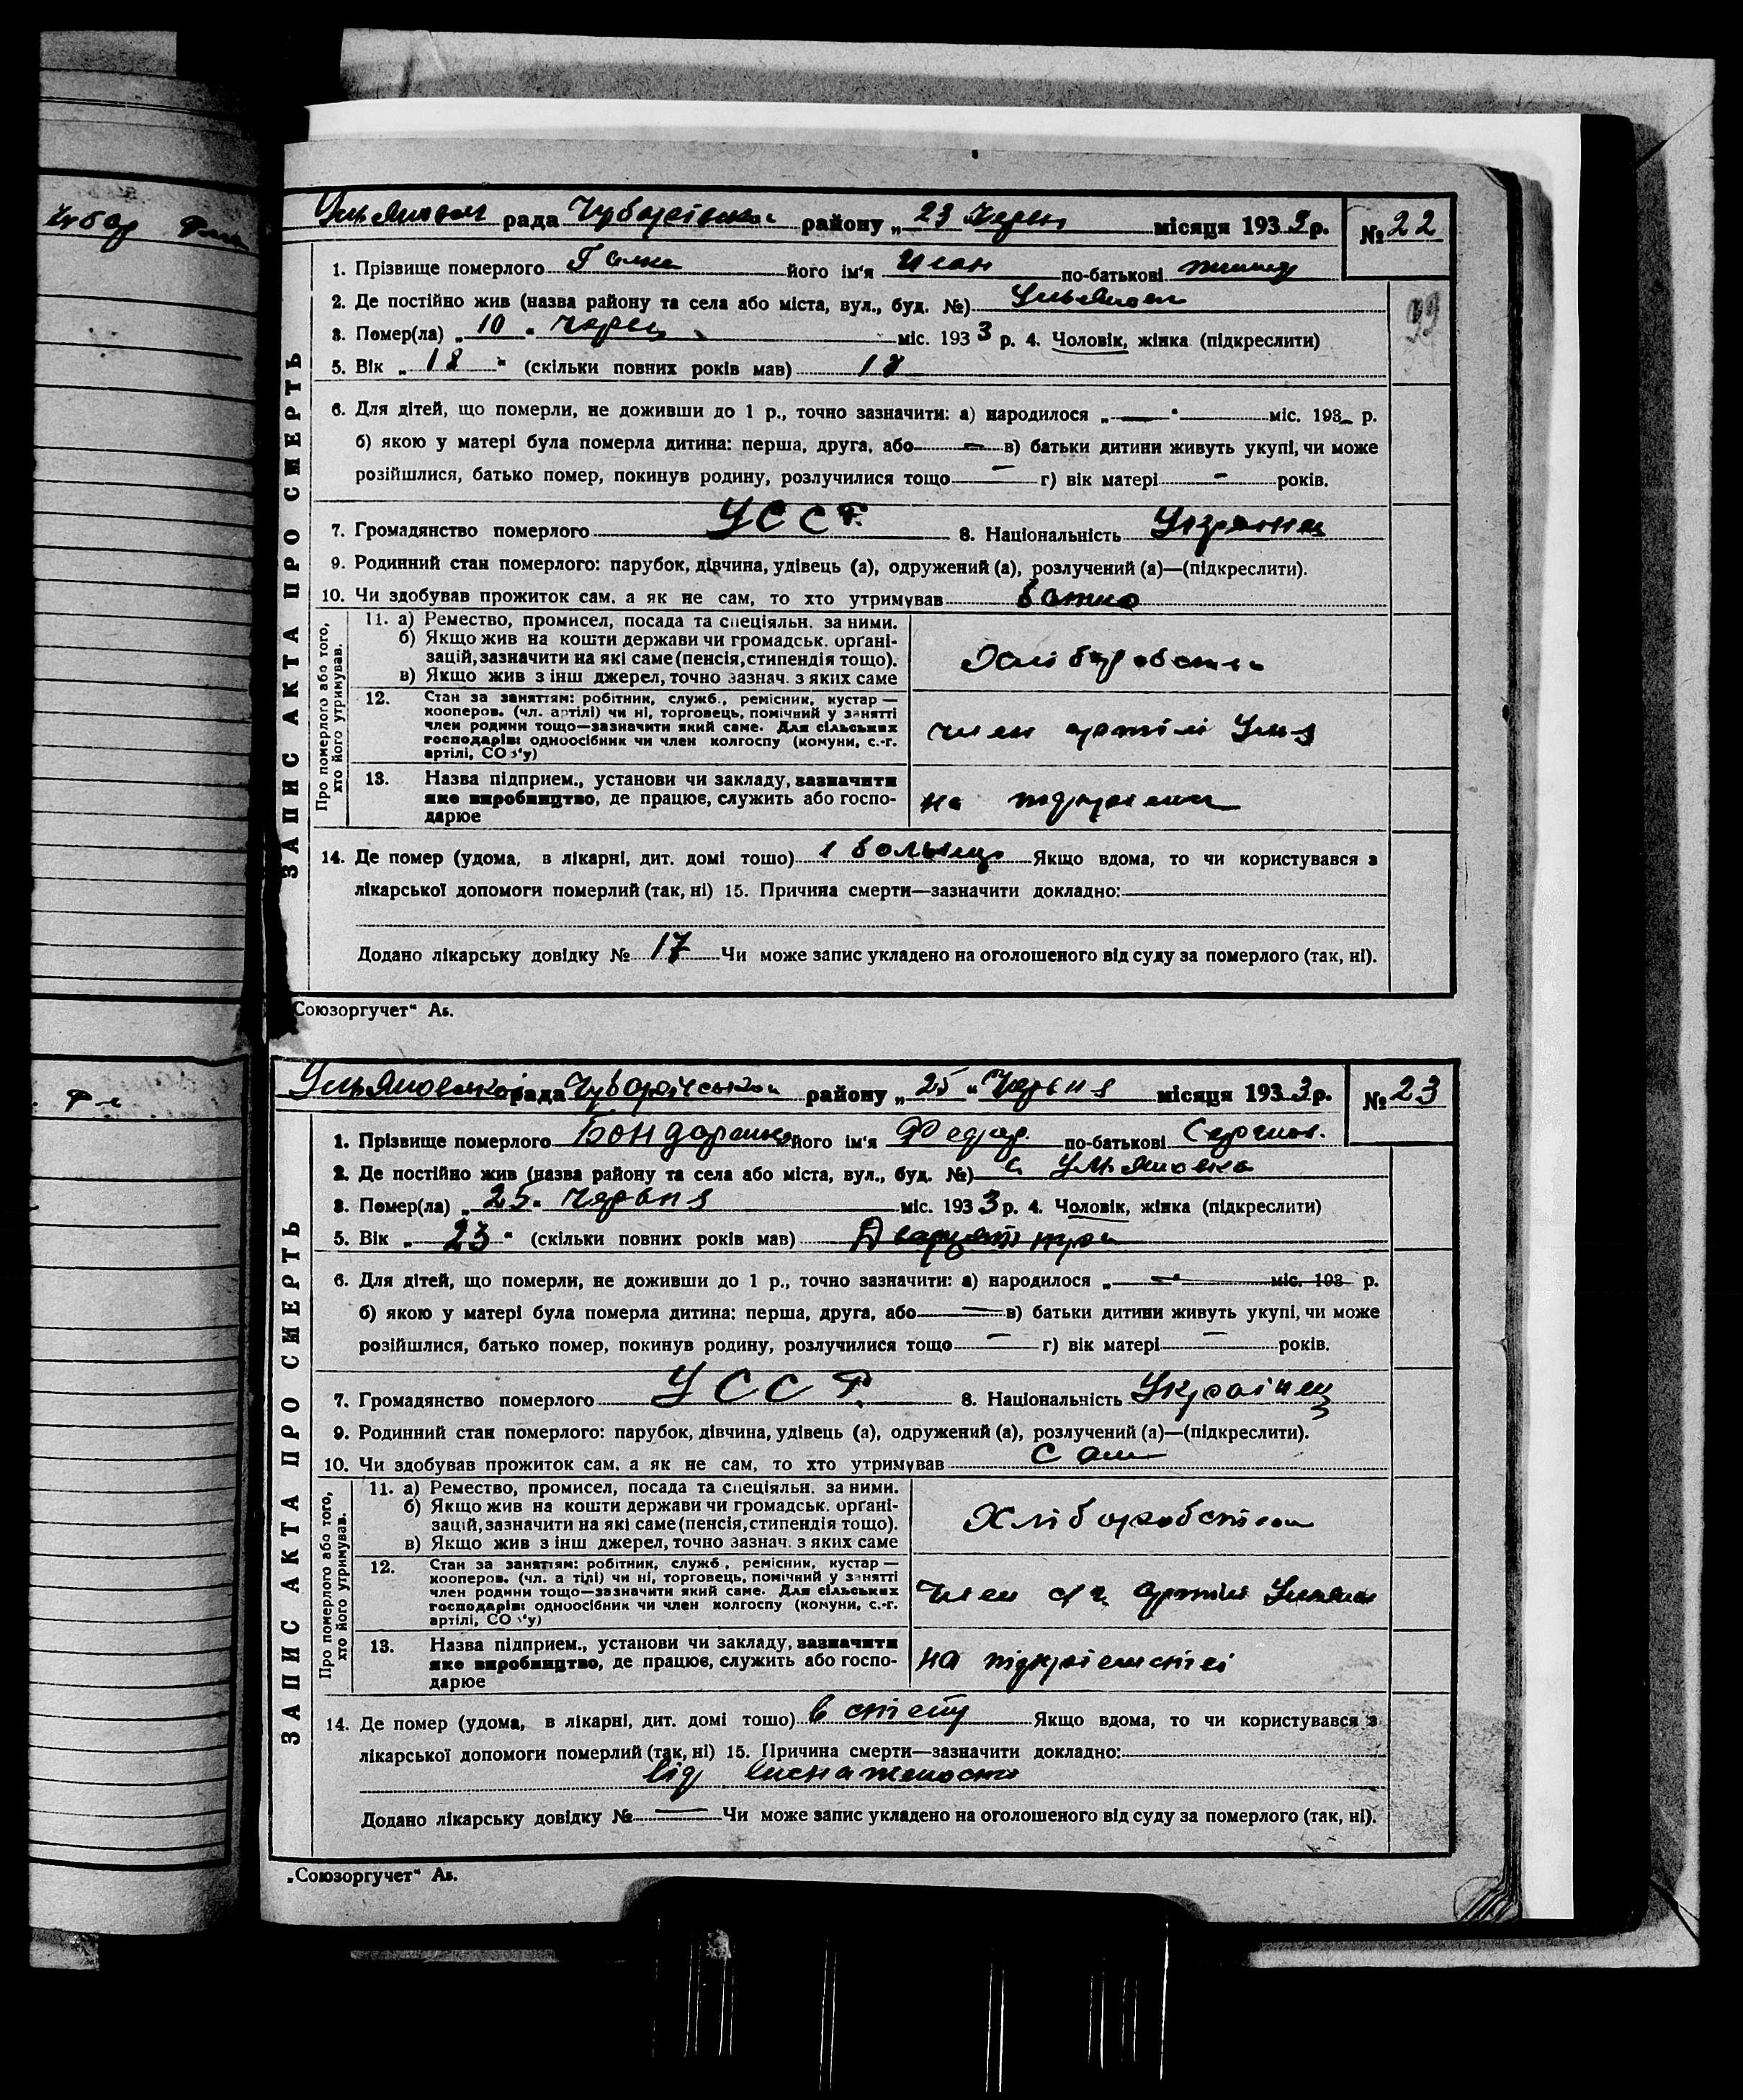 рада Чубарівської району „ 23 " Червн місяця 1933 р. № 22
ЗАПИС АКТА ПРО СМЕРТЬ
1. Прізвище померлого його ім'я Иван по-батькові
2. Де постійно жив (назва району та села або міста, вул., буд. №)
3. Помер(ла) „ 10 " міс. 1933 р. 4. Чоловік, жінка (підкреслити)
5. Вік „ 18 " (скільки повних років мав) 18
6. Для дітей, що померли, не доживши до 1 р., точно зазначити: а) народилося „ — " міс. 193 р.
б) якою у матері була померла дитина: перша, друга, або — в) батьки дитини живуть укупі, чи може
розійшлися, батько помер, покинув родину, розлучилися тощо — г) вік матері - років.
7. Громадянство померлого УССР. 8. Національність
9. Родинний стан померлого: парубок, дівчина, удівець (а), одружений (а), розлучений (а)—(підкреслити).
10. Чи здобував прожиток сам, а як не сам, то хто утримував батько
Про померлого або того, хто його утримував.
11. а) Ремество, промисел, посада та спеціяльн. за ними.
б) Якщо жив на кошти держави чи громадськ. орґані-
зацій, зазначити на які саме (пенсія, стипендія тощо).
в) Якщо жив з інш джерел, точно зазнач. з яких саме
12. Стан за заняттям: робітник, служб., ремісник, кустар —
кооперов. (чл. артілі) чи ні, торговець, помічний у занятті
член родини тощо—зазначити який саме. Для сільських
господарів: одноосібник чи член колгоспу (комуни, с.-г.
артілі, СОЗ'у)
член артілі
13. Назва підприєм., установи чи закладу, зазначити
яке виробництво, де працює, служить або госпо-
дарює
на
14. Де помер (удома, в лікарні, дит. домі тощо) Якщо вдома, то чи користувався з
лікарської допомоги померлий (так, ні) 15. Причина смерти—зазначити докладно:
Додано лікарську довідку № 17 Чи може запис укладено на оголошеного від суду за померлого (так, ні).
Союзоргучет" Ав.
рада Чубарівської району „ 25 " Червня місяця 1933 р. № 23
ЗАПИС АКТА ПРО СМЕРТЬ
1. Прізвище померлого Бондаренко його ім'я Федор. по-батькові
2. Де постійно жив (назва району та села або міста, вул., буд. №) с. Ульяновка
3. Помер(ла) „ 25 " Червня міс. 1933 р. 4. Чоловік, жінка (підкреслити)
5. Вік „ 23 " (скільки повних років мав) Двадцять три
6. Для дітей, що померли, не доживши до 1 р., точно зазначити: а) народилося „ — " міс. 193 р.
б) якою у матері була померла дитина: перша, друга, або — в) батьки дитини живуть укупі, чи може
розійшлися, батько помер, покинув родину, розлучилися тощо — г) вік матері — років.
7. Громадянство померлого УССР. 8. Національність Українец
9. Родинний стан померлого: парубок, дівчина, удівець (а), одружений (а), розлучений (а)—(підкреслити).
10. Чи здобував прожиток сам, а як не сам, то хто утримував Сам
Про померлого або того, хто його утримував.
11. а) Ремество, промисел, посада та спеціяльн. за ними.
б) Якщо жив на кошти держави чи громадськ. орґані-
зацій, зазначити на які саме (пенсія, стипендія тощо).
в) Якщо жив з інш джерел, точно зазнач. з яких саме
Хліборобство
12. Стан за заняттям: робітник, служб., ремісник, кустар —
кооперов. (чл. а тілі) чи ні, торговець, помічний у занятті
член родини тощо—зазначити який саме. Для сільських
господарів: одноосібник чи член колгоспу (комуни, с.-г.
артілі, СОЗ'у)
член с г. артілі
13. Назва підприєм., установи чи закладу, зазначити
яке виробництво, де працює, служить або госпо-
дарює
на
14. Де помер (удома, в лікарні, дит. домі тощо) в степу Якщо вдома, то чи користувався з
лікарської допомоги померлий (так, ні) 15. Причина смерти—зазначити докладно:
від
Додано лікарську довідку № — Чи може запис укладено на оголошеного від суду за померлого (так, ні).
„Союзоргучет" Ав.